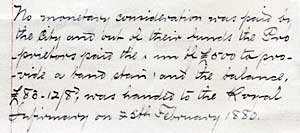 No monetary consideration was paid by
the City and out of their funds the Pro-
prietors paid the sum of £500 to pro-
vide a band stand and the balance,
£83-12/8, was handed to the Royal
Infirmary on 25th February 1880.